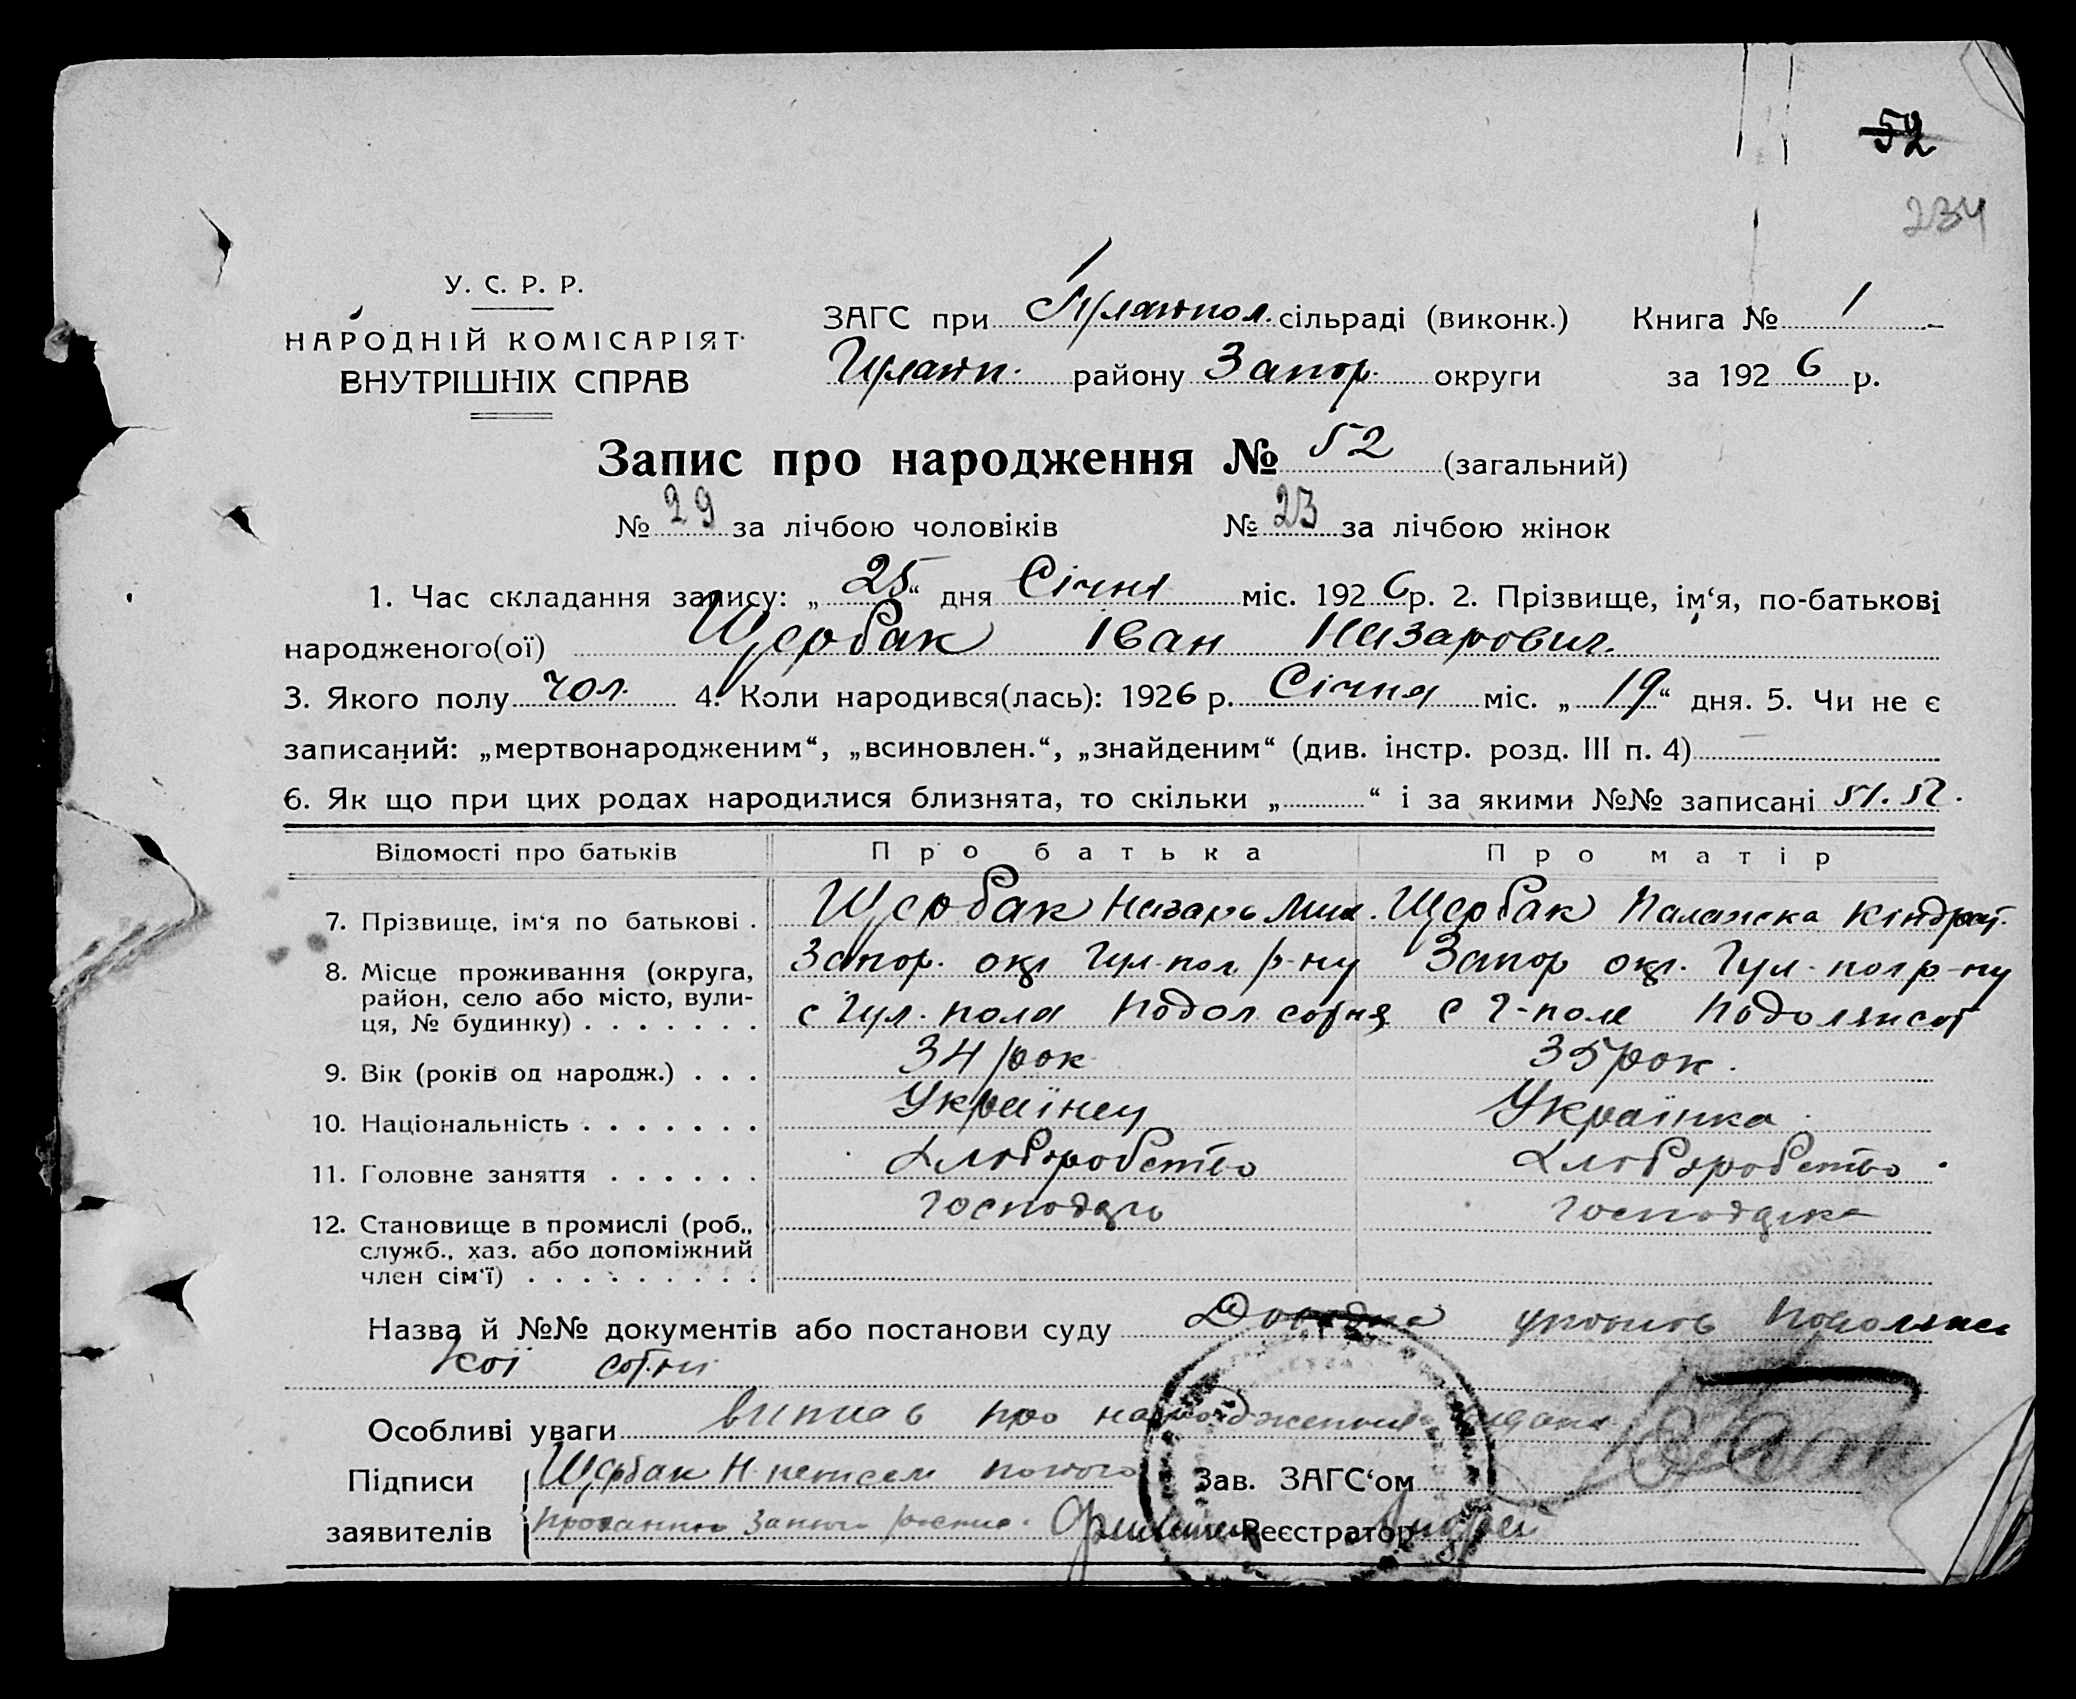 52
234
У. С. Р. Р.
НАРОДНІЙ КОМІСАРІЯТ
ВНУТРІШНІХ СПРАВ
ЗАГС при Гуляйпол. сільраді (виконк.) Книга № 1
Гуляйп. району Запор. округи за 1926 р.
Запис про народження № 52 (загальний)
№ 29 за лічбою чоловіків № 23 за лічбою жінок
1. Час складання запису: „25“ дня Січня міс. 1926 р. 2. Прізвище, ім‘я, по-батькові
народженого(ої) Щербак Іван Назарович.
3. Якого полу чол. 4. Коли народився(лась): 1926 р. Січня міс. „19“ дня. 5. Чи не є
записаний: „мертвонародженим“, „всиновлен.“, „знайденим“ (див. інстр. розд. III п. 4)
6. Як що при цих родах народилися близнята, то скільки „ “ і за якими №№ записані 51. 52.
Відомості про батьків Про батька Про матір
7. Прізвище, ім‘я по батькові . Щербак Назарь Мих. Щербак Палажка Кіндрат.
8. Місце проживання (округа, район, село або місто, вулиця, № будинку) . . . . . . . Запор. окр Гул-пол. р-ну Запор окр. Гул-пол р-ну
с Гул. поля Подол сотня с Г-поле Подолянсот
9. Вік (років од народж.) . . . 34 рок 35 рок.
10. Національність . . . . . . . Українец Українка
11. Головне заняття . . . . . . Хлоборобство Хлоборобство
12. Становище в промислі (роб., служб., хаз. або допоміжний член сім‘ї) . . . . . . . . . господарь господарка
Назва й №№ документів або постанови суду
кої сотни
Особливі уваги випись про народження видана
Підписи Щербак Н. Зав. ЗАГС‘ом
заявителів Реєстратор